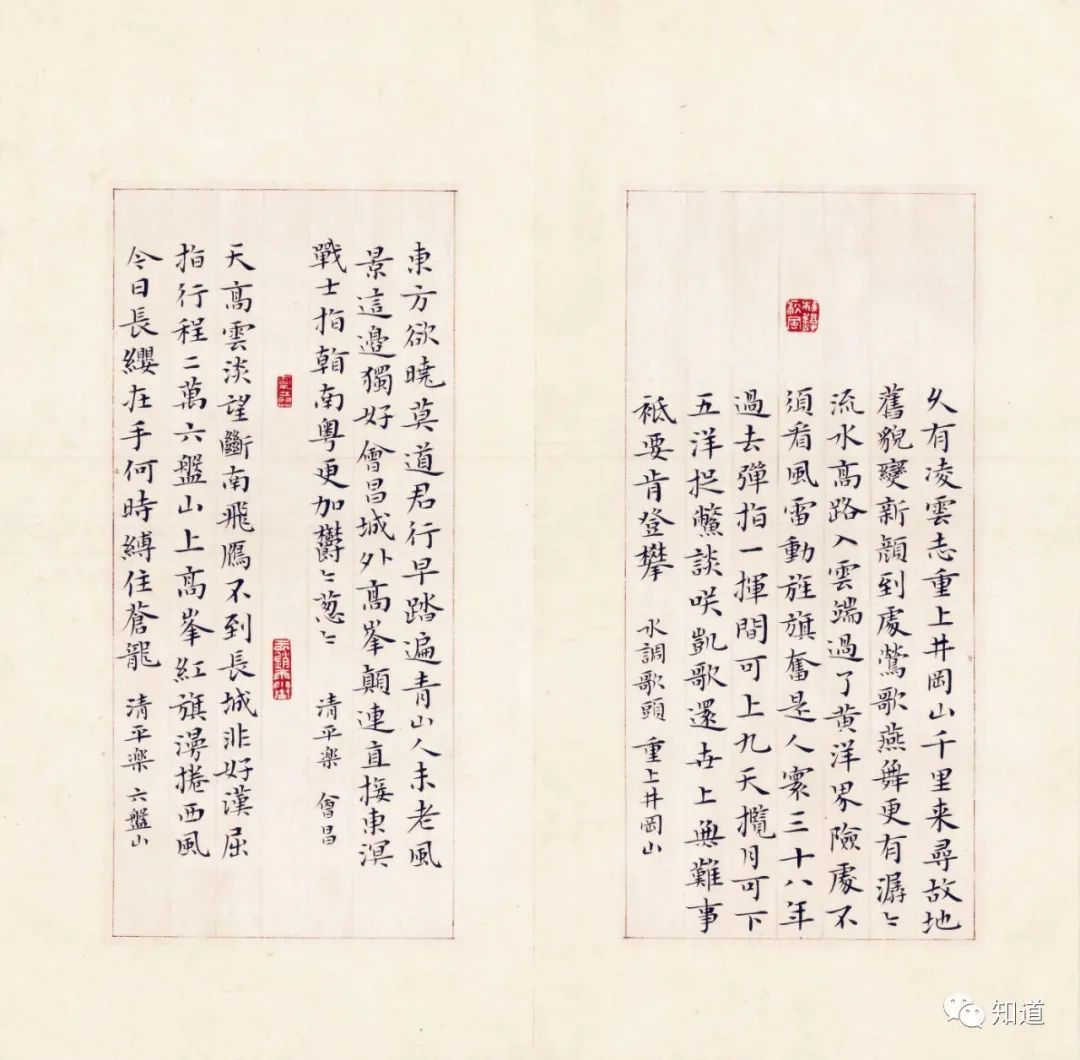 久有凌雲志重上井岡山千里来尋故地
舊貌變新顔到處鶯歌燕舞更有潺〻
流水高路入雲端過了黄洋界險處不
須看風雷動旌旗奮是人寰三十八年
過去彈指一揮間可上九天攬月可下
五洋捉鱉談咲凱歌還卋上無難事
祗要肯登攀 水調歌頭 重上井岡山
東方欲曉莫道君行早踏遍青山人未老風
景這邊獨好會昌城外高峯顛連直接東溟
戰士指𥉼南粤更加鬱〻葱〻 清平樂 會昌
天高雲淡望斷南飛鴈不到長城非好漢屈
指行程二萬六盤山上高峯紅旗漫捲西風
今日長纓在手何時縛住蒼龍 清平樂 六盤山
知道